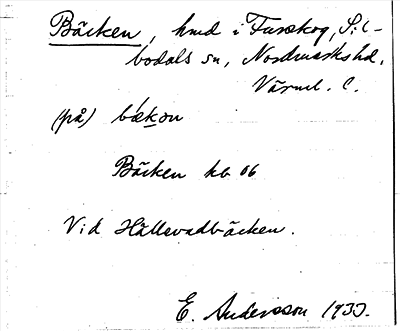 Bäcken, hmd i Furskog, Sil-
bodals sn, Nordmarks hd,
Värml. l.
(på) bǽkon
Bäcken kb 06
Vid Hällevadbäcken.
E. Andersson 1933.